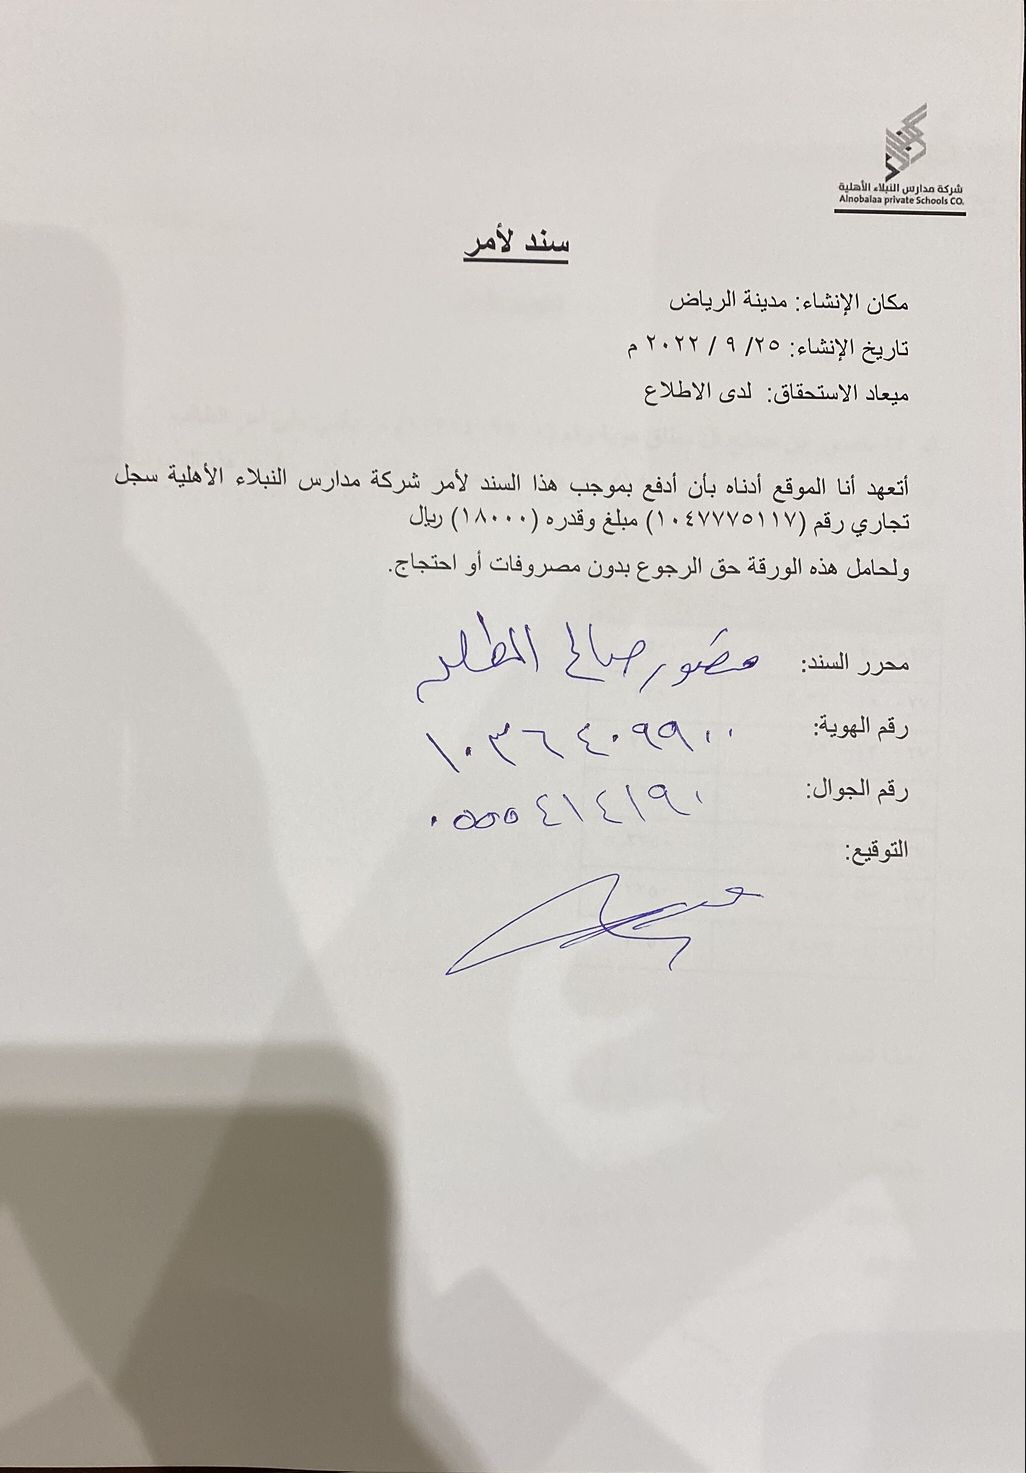 شركة مدارس النبلاء الأهلية
Alnobalaa private Schools CO.
سند لأمر
مكان الإنشاء: مدينة الرياض
تاريخ الإنشاء: ٢٥/ ٩ / ٢٠٢٢ م
ميعاد الاستحقاق: لدى الاطلاع
أتعهد أنا الموقع أدناه بأن أدفع بموجب هذا السند لأمر شركة مدارس النبلاء الأهلية سجل
تجاري رقم (١٠٤٧٧٧٥١١٧) مبلغ وقدره (١٨٠٠٠) ريال
ولحامل هذه الورقة حق الرجوع بدون مصروفات أو احتجاج.
محرر السند: منصور صالح
رقم الهوية: ١٠٣٦٤٠٩٩٠٠
رقم الجوال: ٠٥٥٥٤١٤١٩٠
التوقيع: